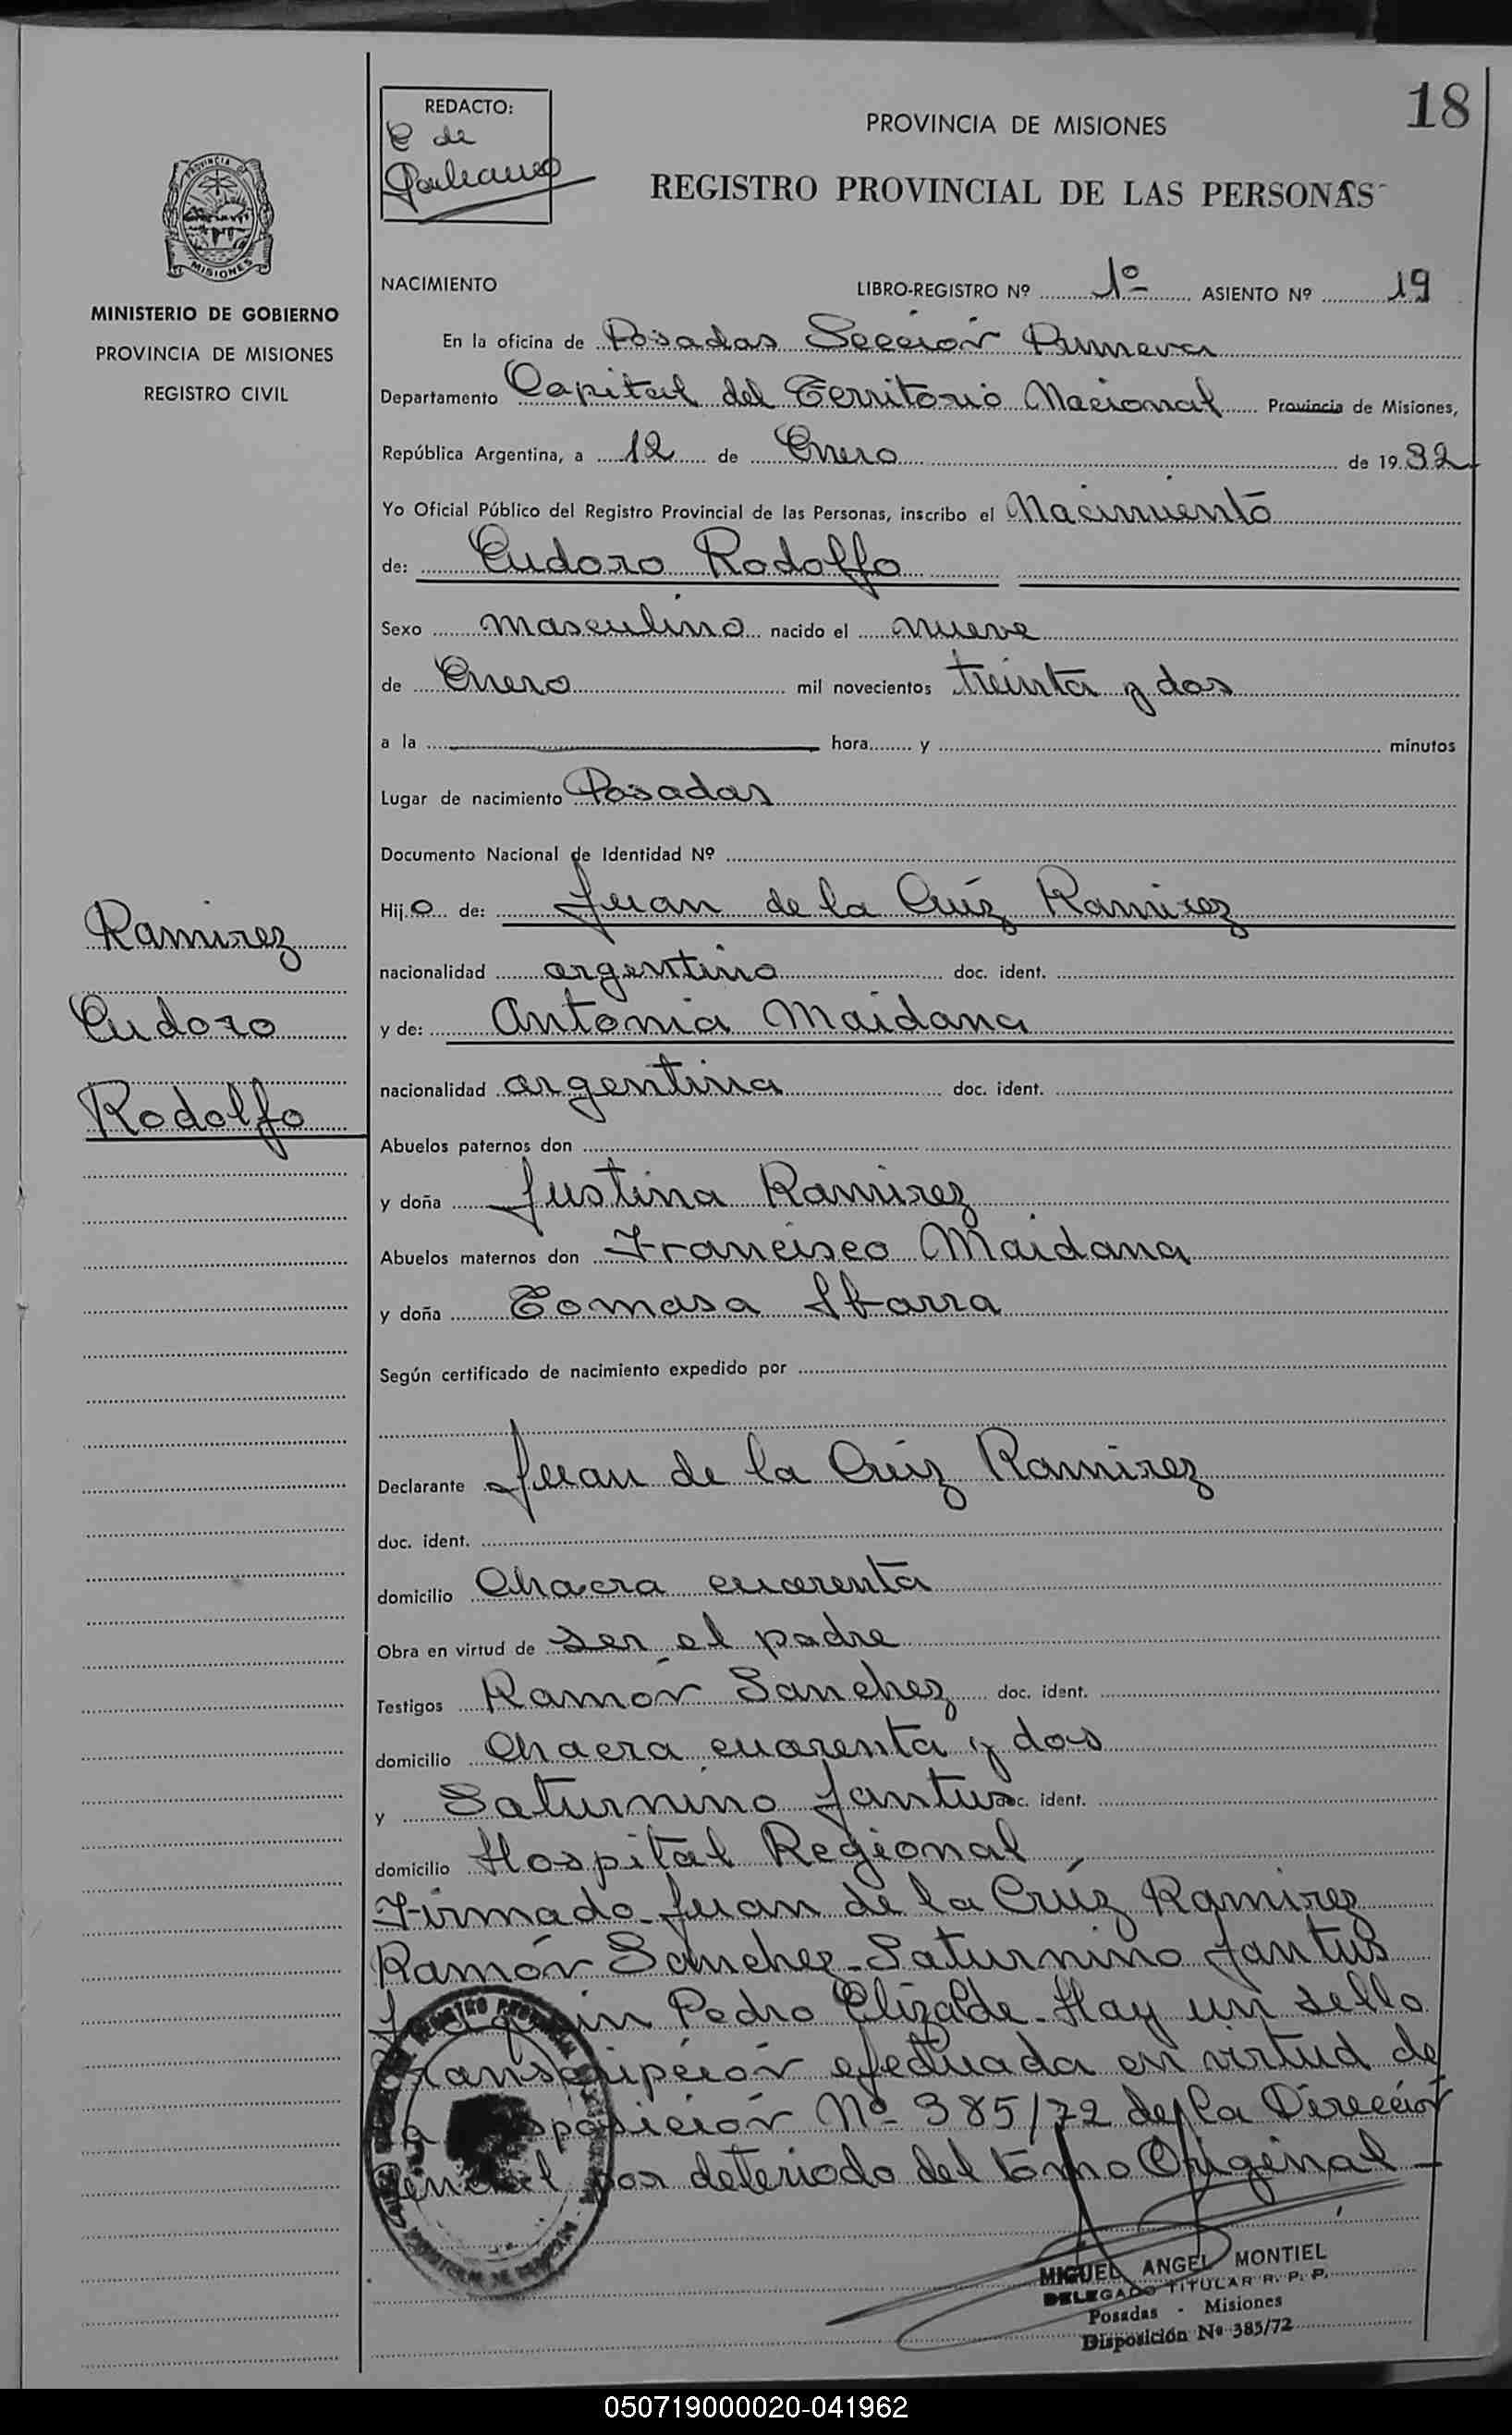 18
REDACTO:
C de
PROVINCIA DE MISIONES
REGISTRO PROVINCIAL DE LAS PERSONAS
PROVINCIA DE
MISIONES
MINISTERIO DE GOBIERNO
PROVINCIA DE MISIONES
REGISTRO CIVIL
NACIMIENTO LIBRO-REGISTRO Nº 1º ASIENTO Nº 19
En la oficina de Posadas Sección Primera
Departamento Capital del Territorio Nacional Provincia de Misiones,
República Argentina, a 12 de Enero de 1932
Yo Oficial Público del Registro Provincial de las Personas, inscribo el Nacimiento
de: Eudoro Rodolfo
Sexo masculino nacido el nueve
de Enero mil novecientos treinta y dos
a la hora y minutos
Lugar de nacimiento Posadas
Documento Nacional de Identidad Nº
Hijo de: Juan de la Crúz Ramirez
nacionalidad argentino doc. ident.
y de: Antonia Maidana
nacionalidad argentina doc. ident.
Abuelos paternos don
y doña Justina Ramirez
Abuelos maternos don Francisco Maidana
y doña Tomasa Ibarra
Según certificado de nacimiento expedido por
Declarante Juan de la Crúz Ramirez
doc. ident.
domicilio Chacra cuarenta
Obra en virtud de ser el padre
Testigos Ramón Sanchez doc. ident.
domicilio Chacra cuarenta y dos
y Saturnino Jantus doc. ident.
domicilio Hospital Regional
Firmado Juan de la Crúz Ramirez
Ramón Sanchez-Saturnino Jantus
Joaquin Pedro Elizalde-Hay un sello
Transcripción efectuada en virtud de
la Disposición Nº 385/72 de la Dirección
General por deteriodo del tomo Original-
Ramirez
Eudoro
Rodolfo
MIGUEL ANGEL MONTIEL
DELEGADO TITULAR R. P. P.
Posadas - Misiones
Disposición Nº 385/72
050719000020-041962